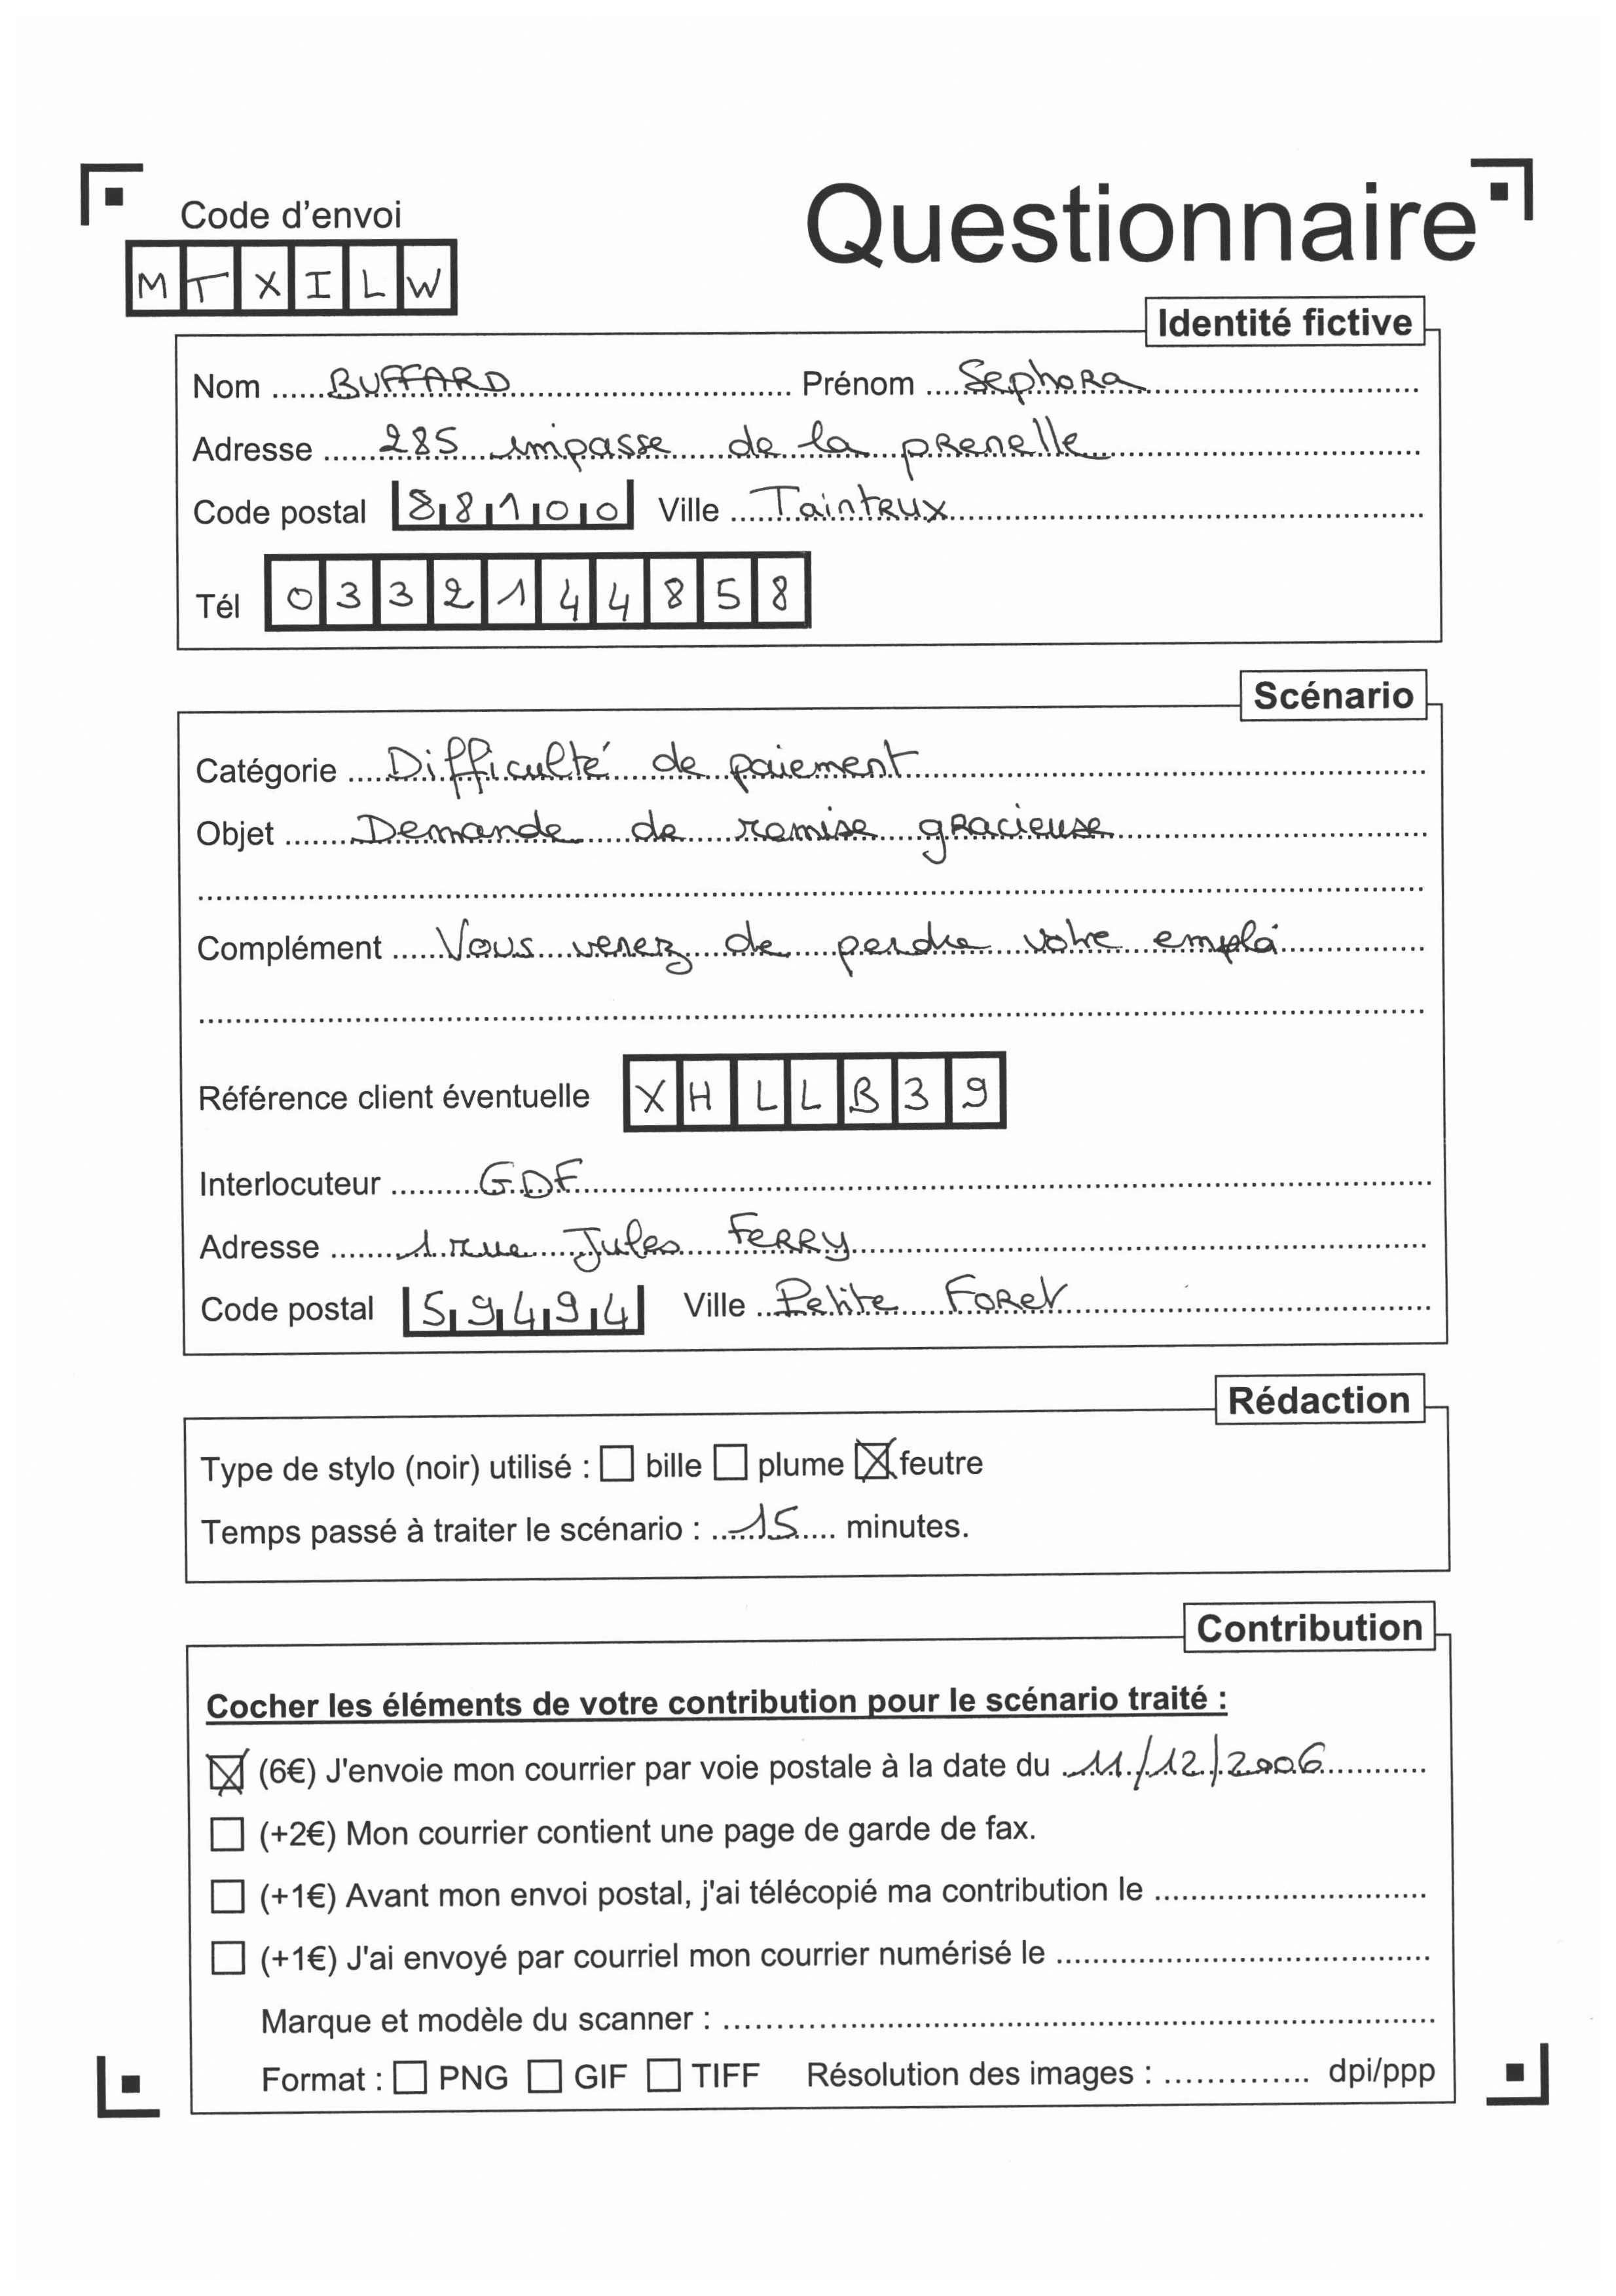 Code d'envoi
Questionnaire
MTXILW
Identité fictive
Nom BUFFARD Prénom Sephora
Adresse 285 impasse de la prenelle
Code postal 88100 Ville Taintrux
Tél 0332144858
Scénario
Catégorie Difficulté de paiement
Objet Demande de remise gracieuse
Complément Vous venez de perdre votre emploi
Référence client éventuelle XHLLB39
Interlocuteur GDF
Adresse 1 rue Jules Ferry
Code postal 59494 Ville Petite Foret
Rédaction
Type de stylo (noir) utilisé : ☐ bille ☐ plume ☒ feutre
Temps passé à traiter le scénario : 15 minutes.
Contribution
Cocher les éléments de votre contribution pour le scénario traité :
☒ (6€) J'envoie mon courrier par voie postale à la date du 11/12/2006
☐ (+2€) Mon courrier contient une page de garde de fax.
☐ (+1€) Avant mon envoi postal, j'ai télécopié ma contribution le
☐ (+1€) J'ai envoyé par courriel mon courrier numérisé le
Marque et modèle du scanner :
Format : ☐ PNG ☐ GIF ☐ TIFF Résolution des images : dpi/ppp